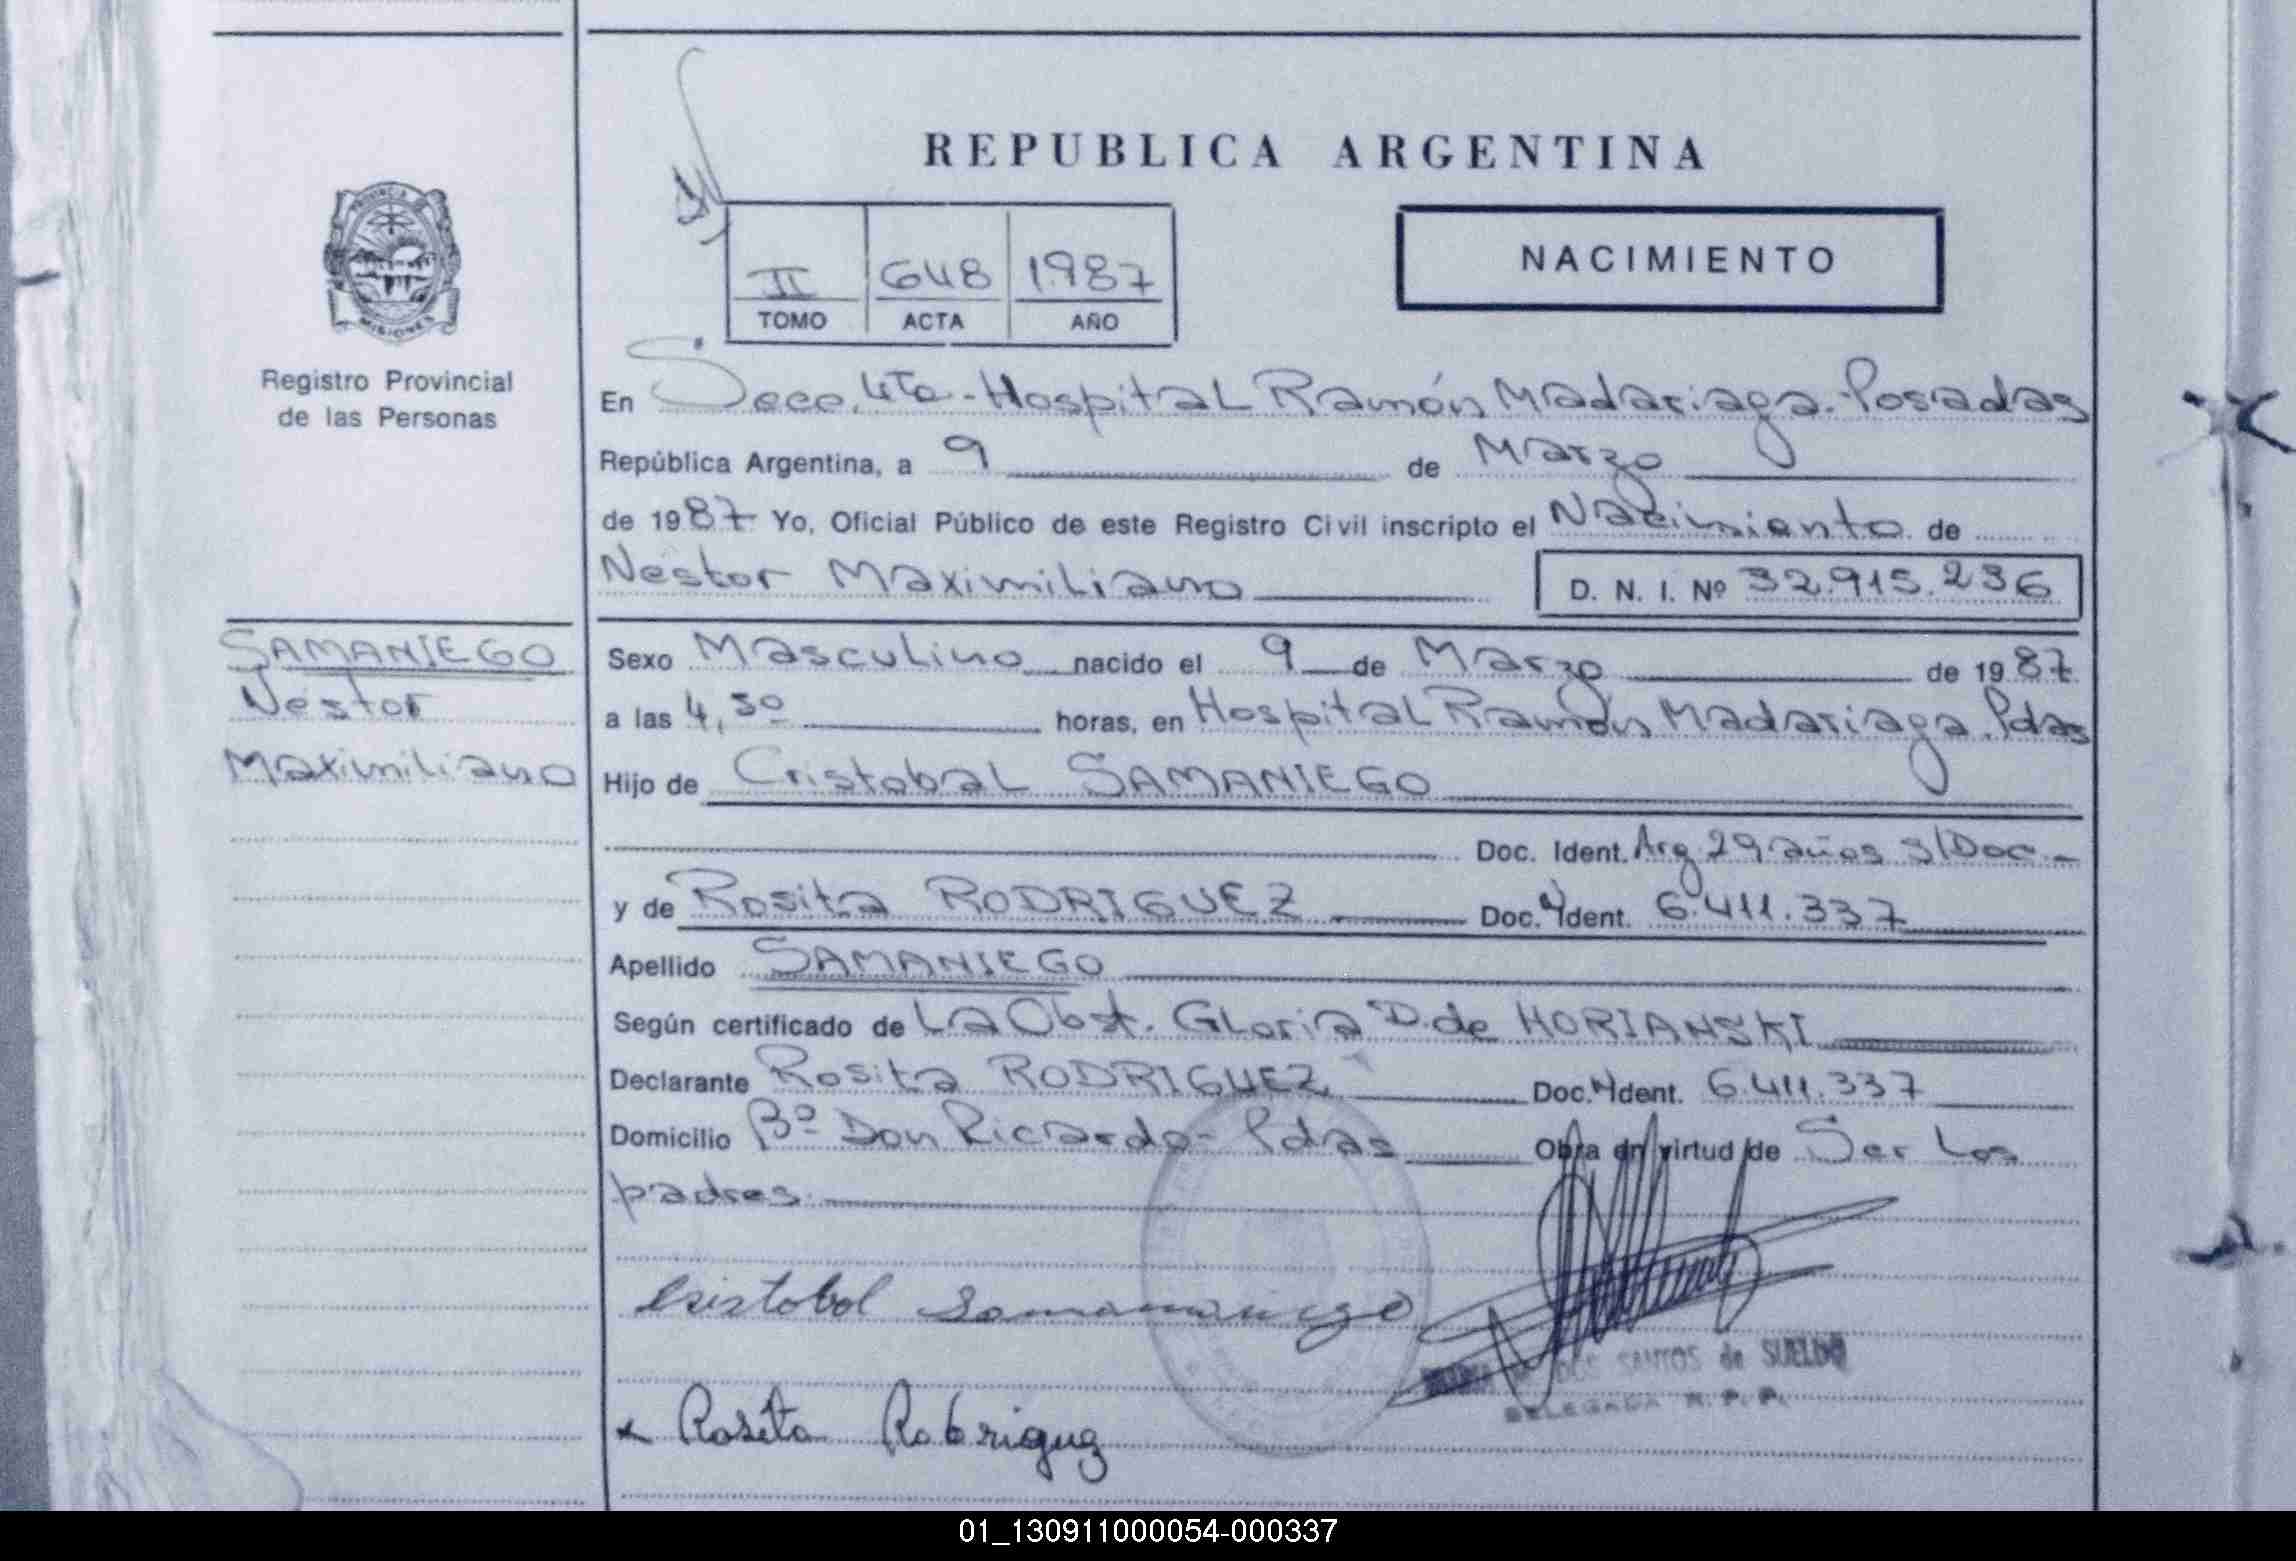 REPUBLICA ARGENTINA
PROVINCIA DE
MISIONES
Registro Provincial
de las Personas
II 648 1987
TOMO ACTA AÑO
NACIMIENTO
En Secc. 4ta - Hospital Ramón Madariaga - Posadas
República Argentina, a 9 de Marzo
de 1987 Yo, Oficial Público de este Registro Civil inscripto el Nacimiento de
Nestor Maximiliano D. N. I. Nº 32.915.236
SAMANIEGO
Nestor
Maximiliano
Sexo Masculino nacido el 9 de Marzo de 1987
a las 4,30 horas, en Hospital Ramón Madariaga. Pdas
Hijo de Cristobal SAMANIEGO
Doc. Ident. Arg 29 años s/Doc.-
y de Rosita RODRIGUEZ Doc. Ident. 6.411.337
Apellido SAMANIEGO
Según certificado de La Obst. Gloria D. de HORIANSKI
Declarante Rosita RODRIGUEZ Doc. Ident. 6.411.337
Domicilio Bº Don Ricardo - Pdas Obra en virtud de Ser Los
padres.
Cristobal Samamaniego
DOS SANTOS de SUELDO
DELEGADA R. P. P.
x Rosita Robriguez
01_130911000054-000337